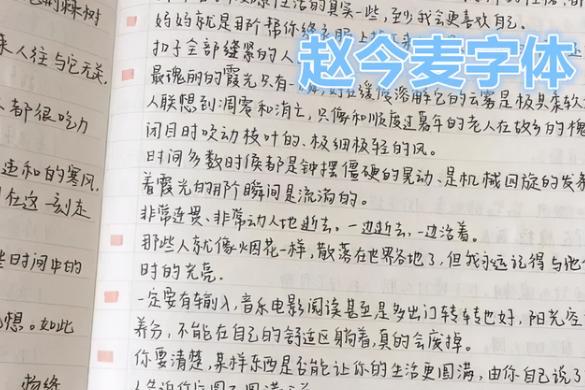 的棘树
来人往与它无关.
都很吃力
违和的寒风.
在这一刻走
些时间中的
想。如此
赵今麦字体
生活的真实一些,至少我会更喜欢自己.
妈妈就是用阶帮你缝衣服上
扣子全部缝紧的人
最瑰丽的霞光只有一 缓慢溶解它的云雾是极具柔软
人联想到凋零和消亡,只像和顺度过暮年的老人在故乡的槐
闭目时吹动枝叶的、极细极轻的风.
时间多数时候都是钟摆僵硬的晃动、是机械回旋的发条
着霞光的那阶瞬间是流淌的.
非常连贯、非常动人地逝去.一边逝去,一边活着.
那些人就像烟花一样,散落在世界各地了,但我永远记得与他
时的光亮.
一定要有输入,音乐电影阅读甚至是多出门转转也好,阳光空
养分,不能在自己的舒适区躺着,真的会废掉.
你要清楚,某样东西是否能让你的生活更圆满,由你自己说了